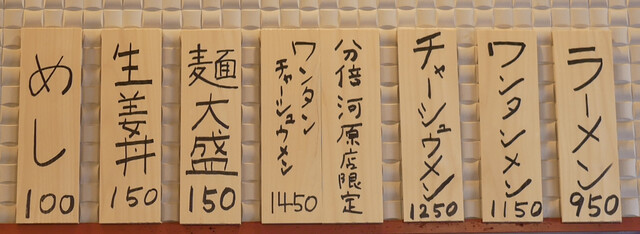 ラーメン
950
ワンタンメン
1150
チャーシュウメン
1250
分倍河原店限定
ワンタン
チャーシュウメン
1450
麺大盛
150
生姜丼
150
めし
100